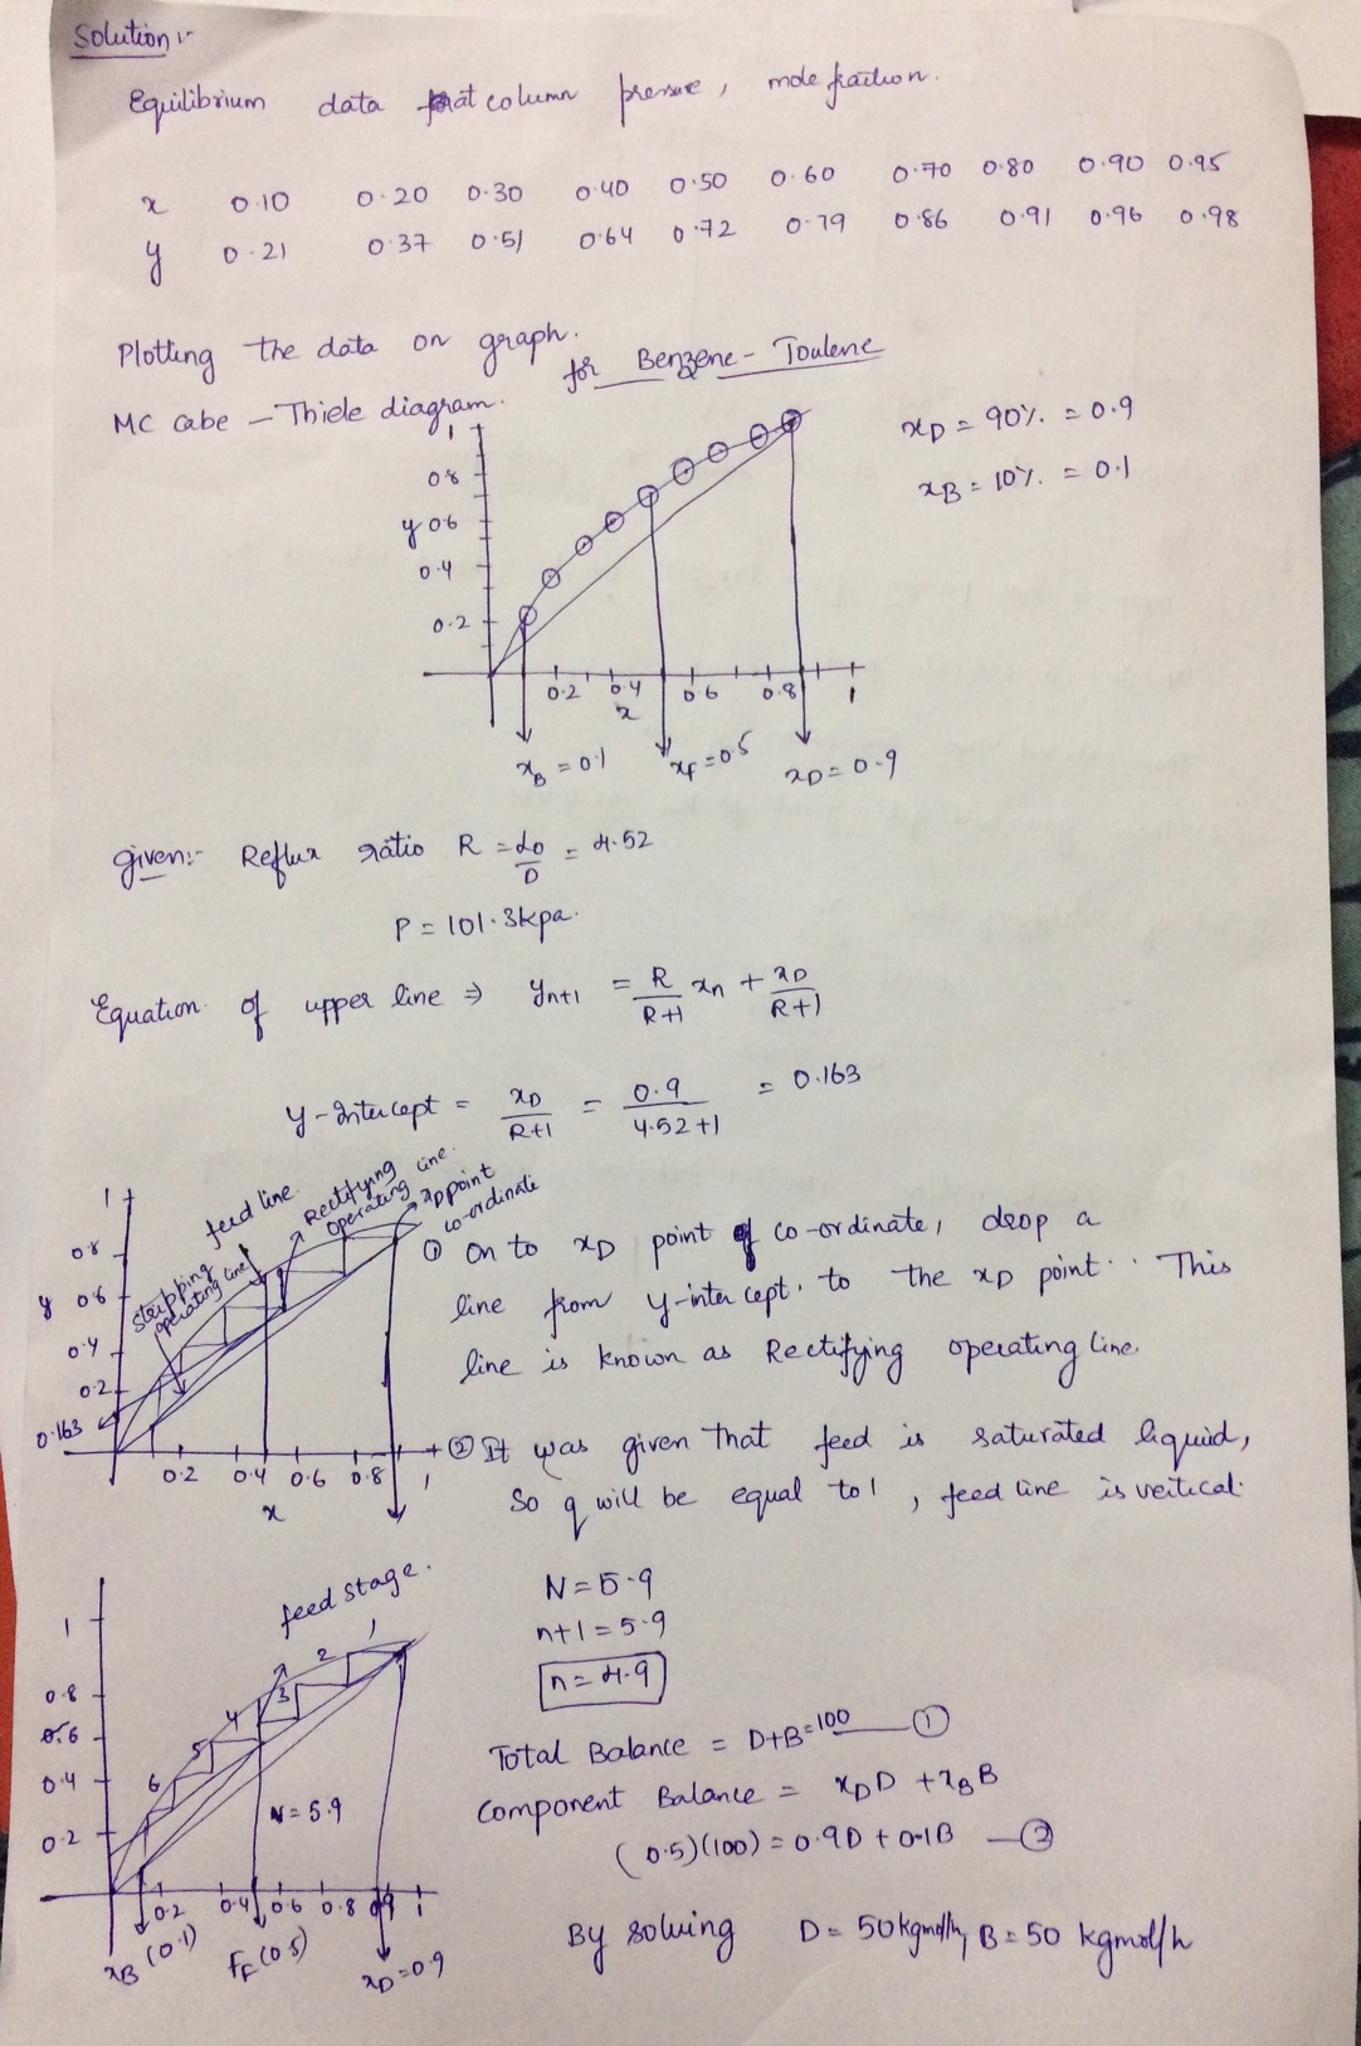 Solution :-
Equilibrium data at column pressure, mole fraction.
x 0.10 0.20 0.30 0.40 0.50 0.60 0.70 0.80 0.90 0.95
y 0.21 0.37 0.51 0.64 0.72 0.79 0.86 0.91 0.96 0.98
Plotting the data on graph.
MC cabe - Thiele diagram. for Benzene - Toulene
xD = 90% = 0.9
xB = 10% = 0.1
1
0.8
y 0.6
0.4
0.2
0.2 0.4 0.6 0.8 1
x
xB = 0.1 xF = 0.5 xD = 0.9
given:- Reflux ratio R = Lo/D = 4.52
P = 101.3kpa.
Equation of upper line ⇒ yn+1 = R/R+1 xn + xD/R+1
y-intercept = xD/R+1 = 0.9/4.52+1 = 0.163
feed line.
Rectifying operating line.
xD point co-ordinate
stripping operating line
1
0.8
y 0.6
0.4
0.2
0.163
0.2 0.4 0.6 0.8 1
x
① On to xD point of co-ordinate, drop a
line from y-intercept, to the xD point. This
line is known as Rectifying operating line.
② It was given that feed is saturated liquid,
So q will be equal to 1, feed line is vertical.
feed stage.
1
0.8
0.6
0.4
0.2
1
2
3
4
5
6
N = 5.9
0.2 0.4 0.6 0.8 0.9 1
xB (0.1) fF (0.5) xD = 0.9
N = 5.9
n+1 = 5.9
n = 4.9
Total Balance = D+B = 100 — ①
Component Balance = xDD + xBB
(0.5)(100) = 0.9D + 0.1B — ②
By solving D = 50kgmol/h, B = 50 kgmol/h